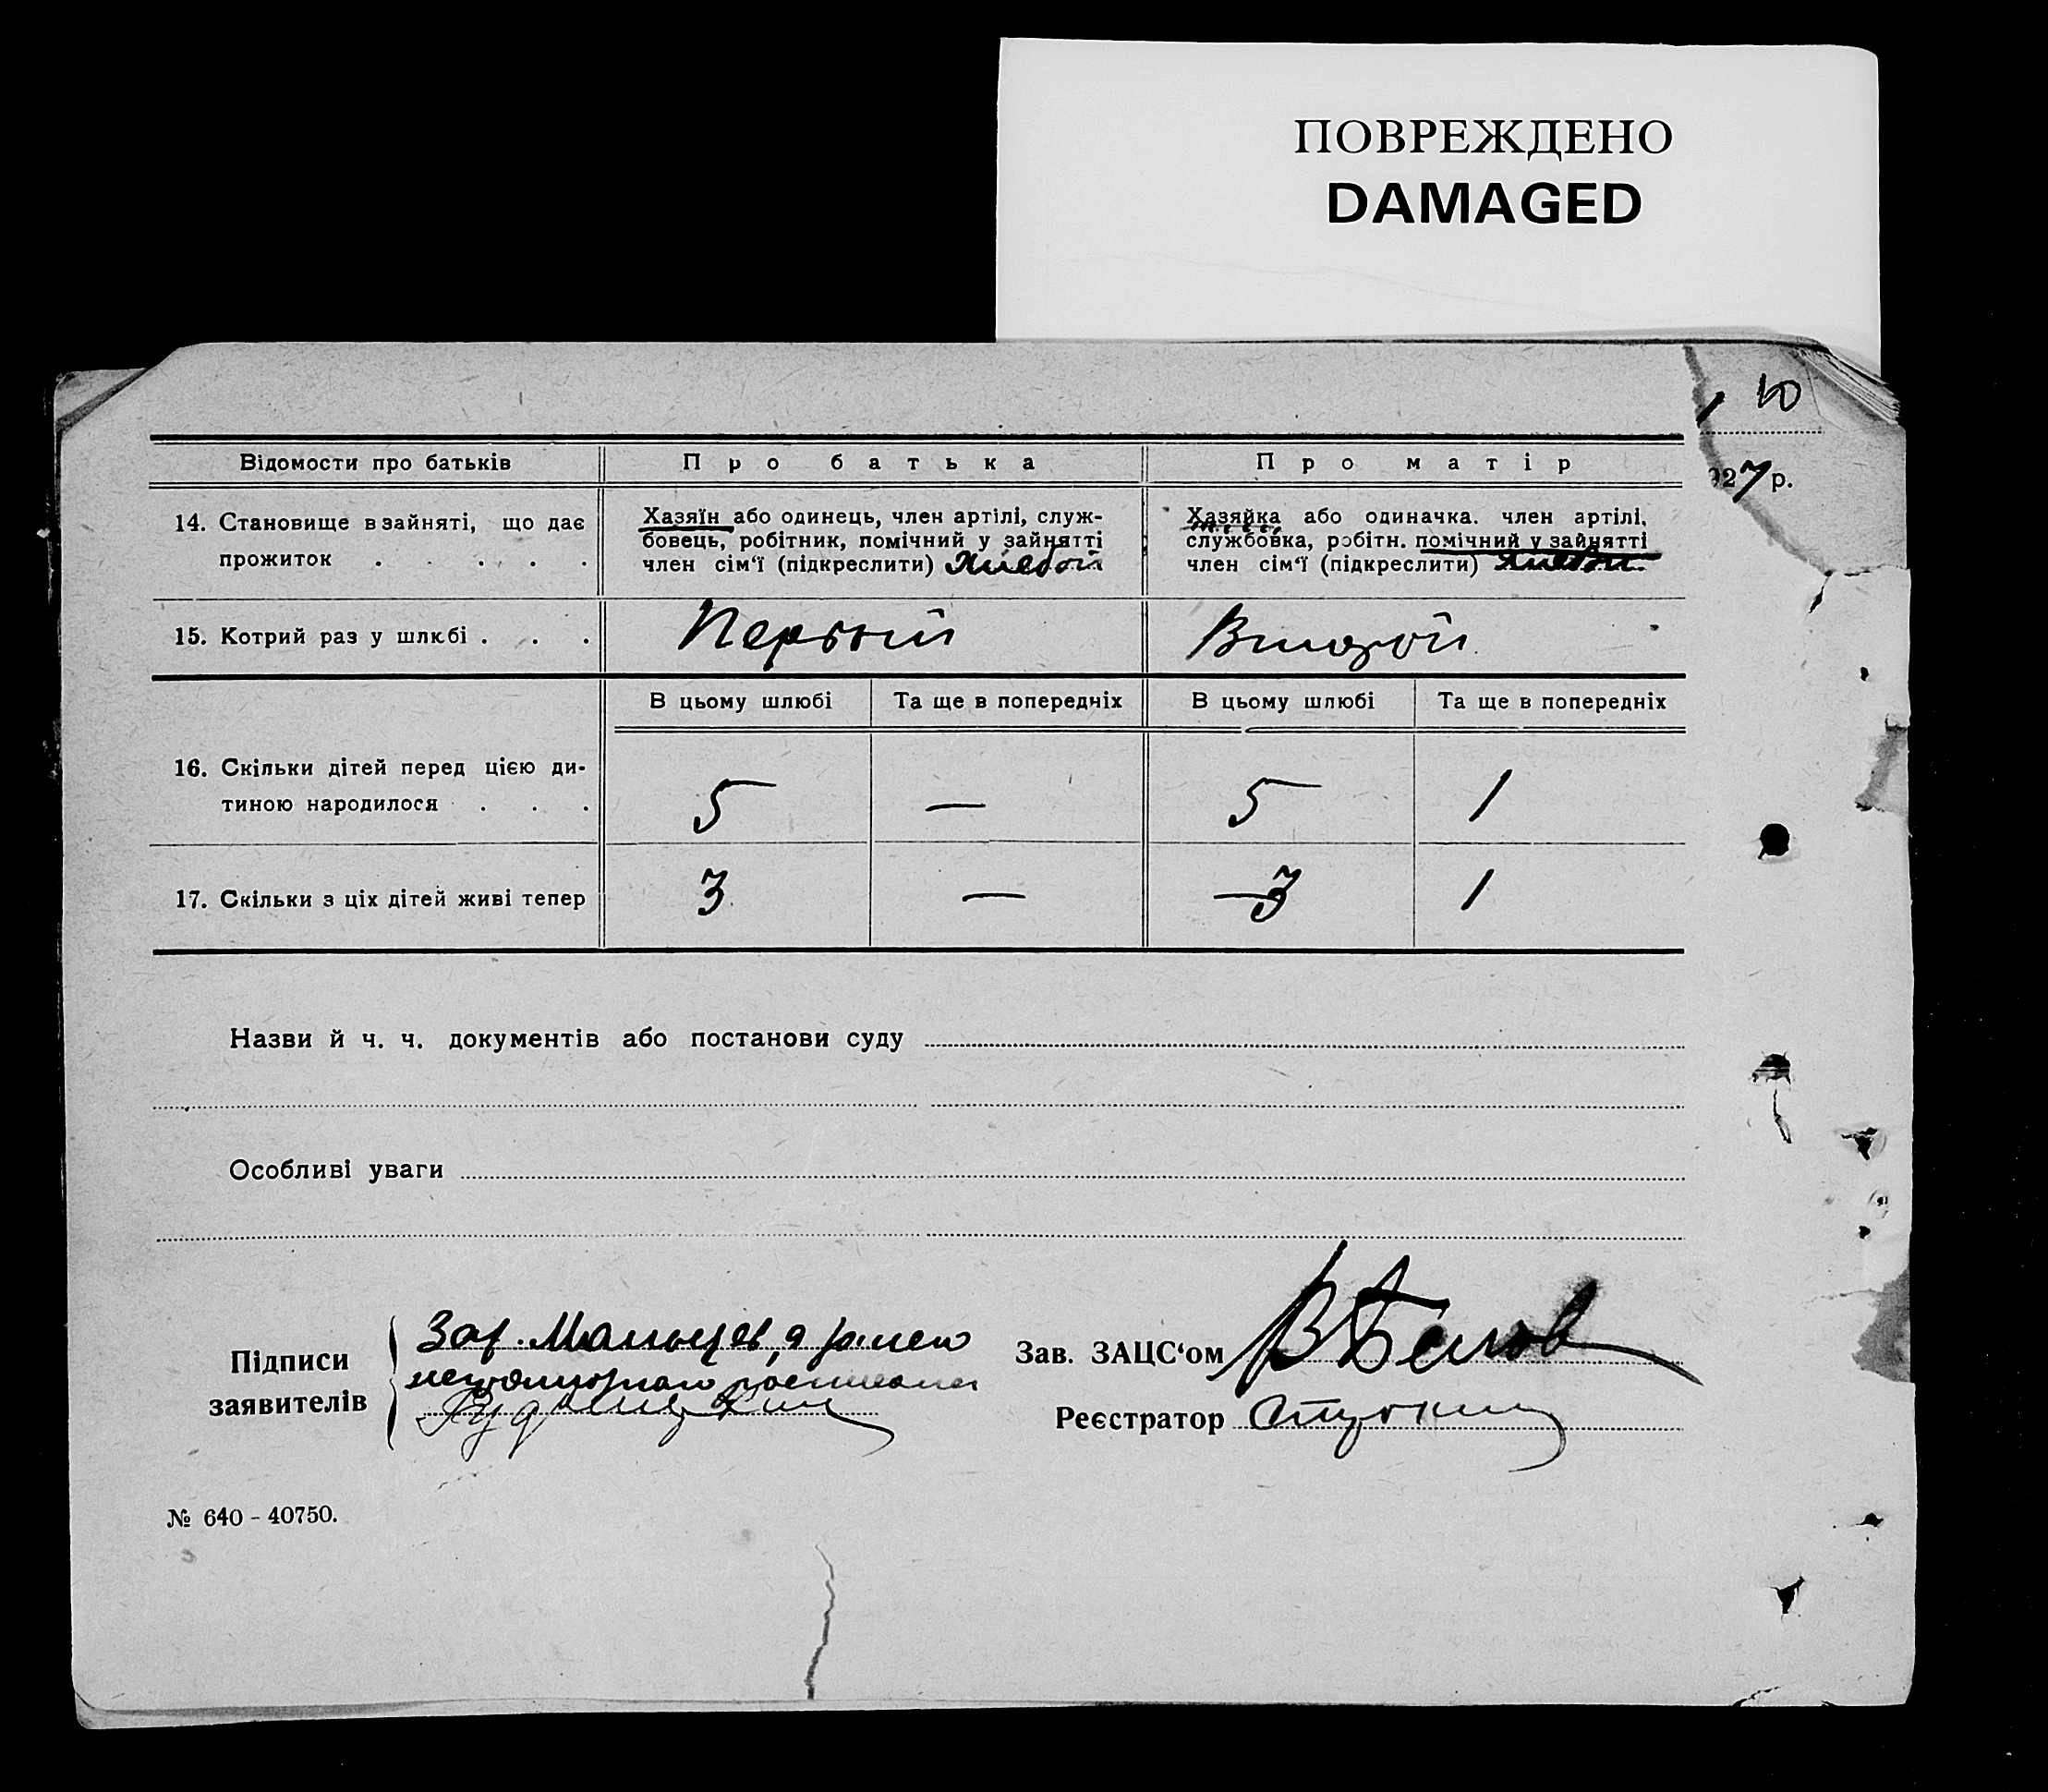 ПОВРЕЖДЕНО
DAMAGED
10
927 р.
Відомости про батьків
Про батька
Про матір
14. Становище в зайняті, що дає прожиток . . . . .
Хазяїн або одинець, член артілі, служ-
бовець, робітник, помічний у зайнятті
член сім'ї (підкреслити)
Хазяйка або одиначка. член артілі,
службовка, робітн. помічний у зайнятті
член сім'ї (підкреслити)
15. Котрий раз у шлюбі . . .
Первый
Второй
В цьому шлюбі
Та ще в попередніх
В цьому шлюбі
Та ще в попередніх
16. Скільки дітей перед цією ди-
тиною народилося . . .
5
—
5
1
17. Скільки з ціх дітей живі тепер
3
—
3
1
Назви й ч. ч. документів або постанови суду
Особливі уваги
Підписи
заявителів
Мальцев, а
Зав. ЗАЦС'ом
В Белов
Реєстратор
№ 640 - 40750.